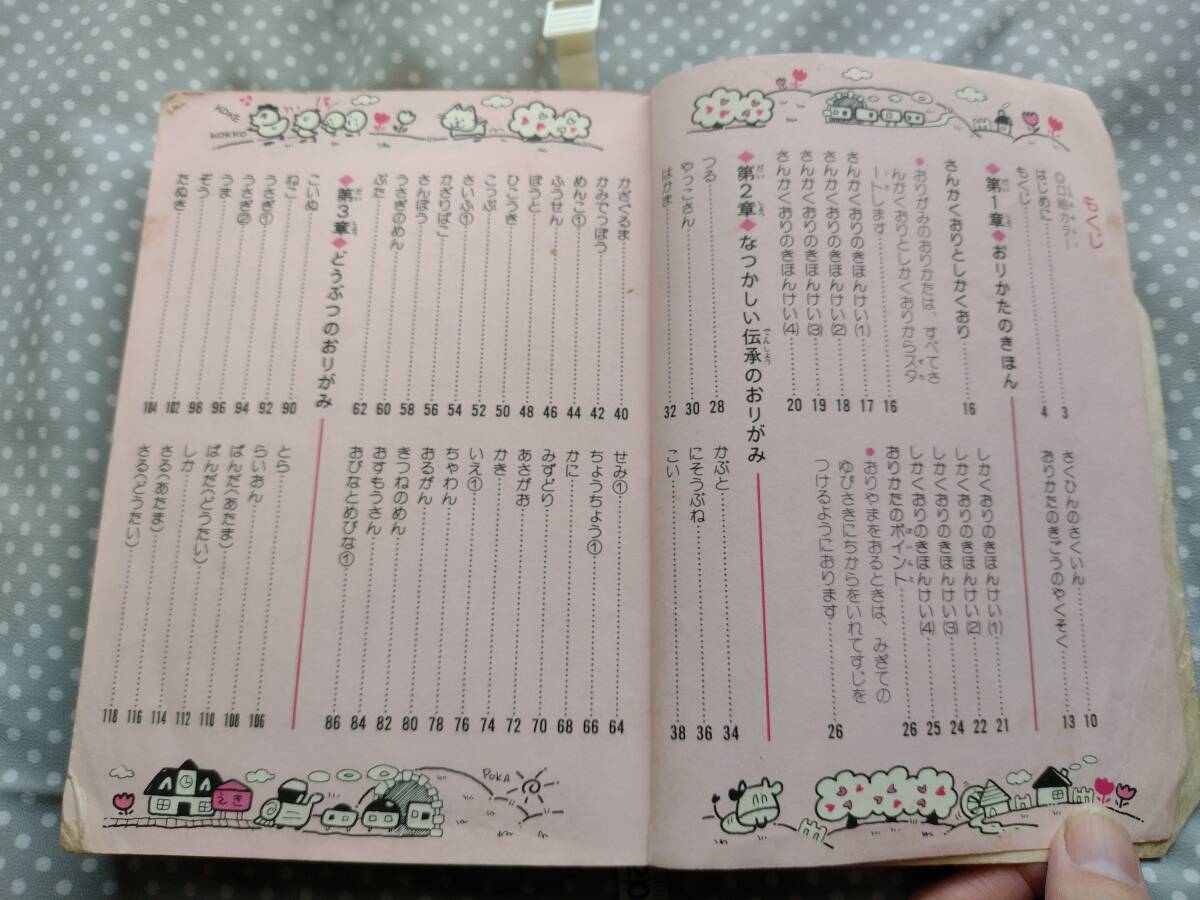 もくじ
◎口絵カラー
はじめに……3
もくじ……4
さくひんのさくいん……10
おりかたのきごうのやくそく……13
◆第1章◆おりかたのきほん
さんかくおりとしかくおり……16
●おりがみのおりかたは、すべてさ
んかくおりとしかくおりからスタ
ートします……16
さんかくおりのきほんけい(1)……17
さんかくおりのきほんけい(2)……18
さんかくおりのきほんけい(3)……19
さんかくおりのきほんけい(4)……20
しかくおりのきほんけい(1)……21
しかくおりのきほんけい(2)……22
しかくおりのきほんけい(3)……24
しかくおりのきほんけい(4)……25
おりかたのポイント……26
●おりやまをおるときは、みぎての
ゆびさきにちからをいれてすじを
つけるようにおります……26
◆第2章◆なつかしい伝承のおりがみ
つる……28
やっこさん……30
はかま……32
かぶと……34
にそうぶね……36
こい……38
かざぐるま……40
かみでっぽう……42
めんこ①……44
ふうせん……46
ぼうと……48
ひこうき……50
こっぷ……52
さいふ①……54
かざりばこ……56
さんぼう……58
うさぎのめん……60
ぶた……62
せみ①……64
ちょうちょう①……66
かに……68
みずどり……70
あさがお……72
かき……74
いえ①……76
ちゃわん……78
おるがん……80
きつねのめん……82
おすもうさん……84
おびなとめびな①……86
◆第3章◆どうぶつのおりがみ
こいぬ……90
ねこ……92
うさぎ①……94
うさぎ②……96
うま……98
ぞう……102
たぬき……104
とら……106
らいおん……108
ぱんだ(あたま)……110
ぱんだ(どうたい)……112
しか……114
さる(あたま)……116
さる(どうたい)……118
KOKE
KOKKO
えき
POKA